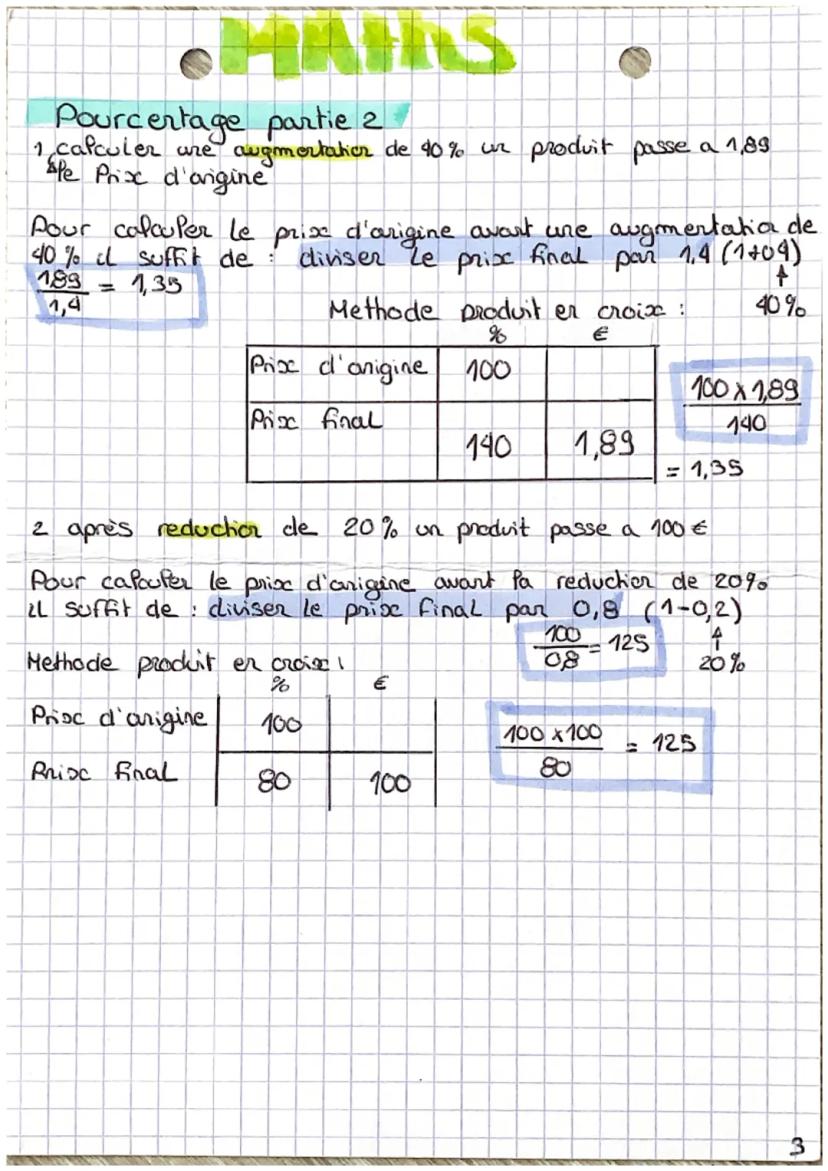 MAthS
Pourcentage partie 2
1 calculer une augmentation de 40% un produit passe a 1,89
le Prix d'origine
Pour calculer le prix d'origine avant une augmentation de
40% il suffit de : diviser le prix final par 1,4 (1+04)
189 / 1,4 = 1,35
40%
Methode produit en croix :
% €
Prix d'origine 100
Prix final 140 1,89
100 x 1,89 / 140
= 1,35
2 après reduction de 20% un produit passe a 100 €
Pour calculer le prix d'origine avant la reduction de 20%
il suffit de : diviser le prix final par 0,8 (1-0,2)
100 / 0,8 = 125
20%
Methode produit en croix :
% €
Prix d'origine 100
Prix final 80 100
100 x 100 / 80 = 125
3